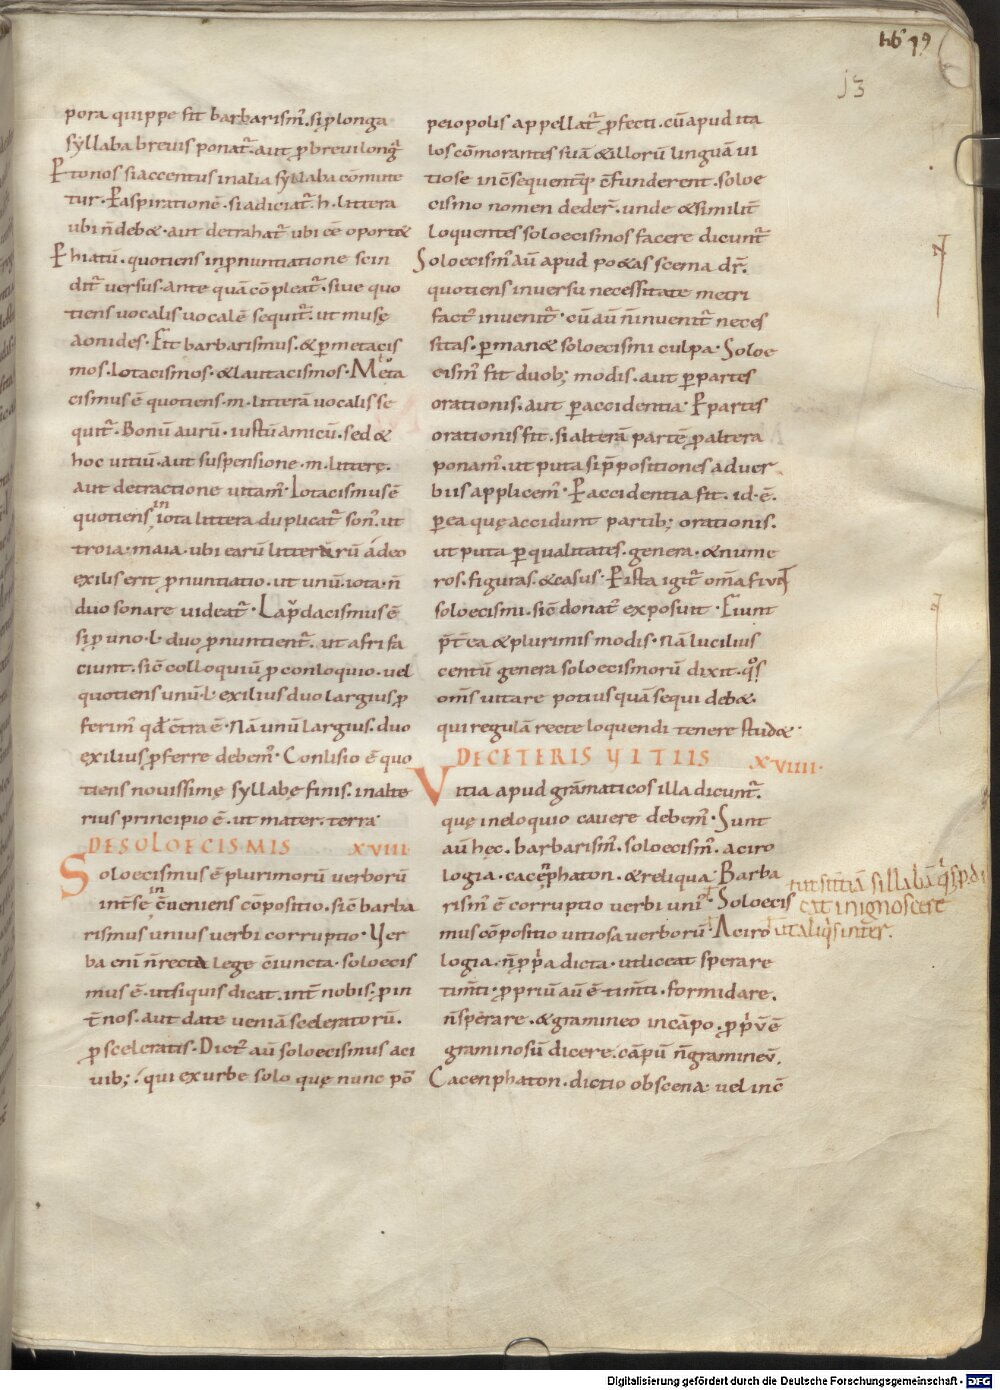 hб 19
13
pora quippe fit barbarism᾽. si ꝓ longa
syllaba breuis ponat᾽. aut ꝓ breui long᾽
Ꝑ tonos si accentus in alia syllaba cōmute
tur. Ꝑ aspirationē. si adiciat᾽. h. littera
ubi n̄ debet. aut detrahat᾽ ubi ēē oportet
Ꝑ hiatū. quotiens in ꝓnuntiatione scin
dit᾽ uersus. ante quā cōpleat᾽. siue quo
tiens uocalis uocalē sequit᾽. ut musę
aonides. Fit barbarismus. & ꝑ metacis
mos. lotacismos. & lautacismos. Meta
cismus ē quotiens. m. litterā uocalis se
quit᾽. Bonū aurū. iustū amicū. sed &
hoc uitiū. aut suspensione. m. litterę.
aut detractione uitam᾽. Iotacismus ē
quotiens in iota littera duplicat᾽ son᾽. ut
troia. maia. ubi earū litterarū adeo
exilis erit ꝓnuntiatio. ut unū. iota. n̄
duo sonare uideat᾽. Lapdacismus ē
si ꝓ uno. l. duo ꝓnuntient᾽. ut afri fa
ciunt. sic̄ colloquiū ꝓ conloquio. uel
quotiens unū. l. exilius duo largius ꝓ
ferim᾽ qđ c̄tra ē. Nā unū largius. duo
exilius ꝓferre debem᾽. Conlisio ē quo
tiens nouissimę syllabę finis. in alte
rius principio ē. ut mater. terra.
DE SOLOECISMIS XVIII
Soloecismus ē plurimorū uerborū
int̄ se in c̄ueniens cōpositio. sic̄ barba
rismus unius uerbi corruptio. Uer
ba eni᾽ n̄ recta lege c̄iuncta. soloecis
mus ē. ut si quis dicat. int̄ nobis. ꝓ in
t̄ nos. aut date ueniā sceleratorū.
ꝓ sceleratis. Dict᾽ aū soloecismus a ci
uib; qui ex urbe solo quę nunc pō
peiopolis appellat᾽ ꝓfecti. cū apud ita
los cōmorantes suā & illorū linguā ui
tiose in c̄sequent̄q; c̄funderent. soloe
cismo nomen deder᾽. unde & similit᾽
loquentes soloecismos facere dicunt᾽
Soloecism᾽ aū apud poetas scema dr̄.
quotiens in uersu necessitate metri
fact᾽ inuenit᾽. cū aū n̄ inuenit᾽ neces
sitas. ꝑmanet soloecismi culpa. Soloe
cism᾽ fit duob; modis. aut ꝑ partes
orationis. aut ꝑ accidentia. Ꝑ partes
orationis fit. si alterā partē ꝓ altera
ponam᾽. ut puta si p̄positiones aduer
biis applicem᾽. Ꝑ accidentia fit. id. ē.
ꝑ ea quę accidunt partib; orationis.
ut puta ꝑ qualitates. genera. & nume
ros. figuras. & casus. Ꝑ ista igit᾽ om̄a fiunt
soloecismi. sic̄ donat᾽ exposuit. Fiunt
p̄t̄ ea & plurimis modis. Nā lucilius
centū genera soloecismorū dixit. q᾽s
om̄s uitare potius quā sequi debet.
qui regulā recte loquendi tenere studet.
DE CETERIS VITIIS XVIIII.
Vitia apud grāmaticos illa dicunt᾽.
quę in eloquio cauere debem᾽. Sunt
aū hęc. barbarism᾽. soloecism᾽. aciro
logia. cacenphaton. & reliqua. Barba
rism᾽ ē corruptio uerbi uni᾽. Soloecis
mus cōpositio uitiosa uerborū. Aciro
logia. n̄ ꝓpria dicta. ut liceat sperare
tim̄ti. ꝓpriū aū ē tim̄ti. formidare.
n̄ sperare. & gramineo in cāpo. ꝓpriū ē
graminosū dicere. cāpū n̄ gramineū.
Cacenphaton. dictio obscena. uel inc̄